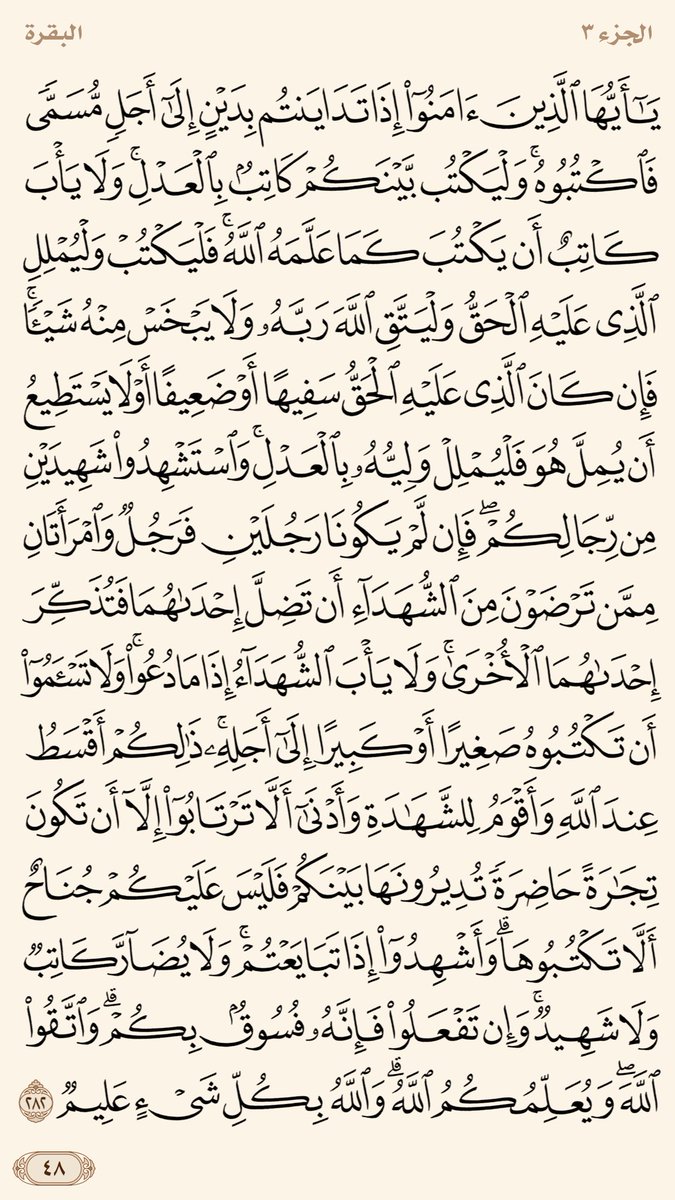 الجزء ٣
البقرة
يَـٰٓأَيُّهَا ٱلَّذِينَ ءَامَنُوٓا۟ إِذَا تَدَايَنتُم بِدَيْنٍ إِلَىٰٓ أَجَلٍ مُّسَمًّى
فَٱكْتُبُوهُ ۚ وَلْيَكْتُب بَّيْنَكُمْ كَاتِبٌۢ بِٱلْعَدْلِ ۚ وَلَا يَأْبَ
كَاتِبٌ أَن يَكْتُبَ كَمَا عَلَّمَهُ ٱللَّهُ ۚ فَلْيَكْتُبْ وَلْيُمْلِلِ
ٱلَّذِى عَلَيْهِ ٱلْحَقُّ وَلْيَتَّقِ ٱللَّهَ رَبَّهُۥ وَلَا يَبْخَسْ مِنْهُ شَيْـًٔا ۚ
فَإِن كَانَ ٱلَّذِى عَلَيْهِ ٱلْحَقُّ سَفِيهًا أَوْ ضَعِيفًا أَوْ لَا يَسْتَطِيعُ
أَن يُمِلَّ هُوَ فَلْيُمْلِلْ وَلِيُّهُۥ بِٱلْعَدْلِ ۚ وَٱسْتَشْهِدُوا۟ شَهِيدَيْنِ
مِن رِّجَالِكُمْ ۖ فَإِن لَّمْ يَكُونَا رَجُلَيْنِ فَرَجُلٌ وَٱمْرَأَتَانِ
مِمَّن تَرْضَوْنَ مِنَ ٱلشُّهَدَآءِ أَن تَضِلَّ إِحْدَىٰهُمَا فَتُذَكِّرَ
إِحْدَىٰهُمَا ٱلْأُخْرَىٰ ۚ وَلَا يَأْبَ ٱلشُّهَدَآءُ إِذَا مَا دُعُوا۟ ۚ وَلَا تَسْـَٔمُوٓا۟
أَن تَكْتُبُوهُ صَغِيرًا أَوْ كَبِيرًا إِلَىٰٓ أَجَلِهِۦ ۚ ذَٰلِكُمْ أَقْسَطُ
عِندَ ٱللَّهِ وَأَقْوَمُ لِلشَّهَـٰدَةِ وَأَدْنَىٰٓ أَلَّا تَرْتَابُوٓا۟ ۖ إِلَّآ أَن تَكُونَ
تِجَـٰرَةً حَاضِرَةً تُدِيرُونَهَا بَيْنَكُمْ فَلَيْسَ عَلَيْكُمْ جُنَاحٌ
أَلَّا تَكْتُبُوهَا ۗ وَأَشْهِدُوٓا۟ إِذَا تَبَايَعْتُمْ ۚ وَلَا يُضَآرَّ كَاتِبٌ
وَلَا شَهِيدٌ ۚ وَإِن تَفْعَلُوا۟ فَإِنَّهُۥ فُسُوقٌۢ بِكُمْ ۗ وَٱتَّقُوا۟
ٱللَّهَ ۖ وَيُعَلِّمُكُمُ ٱللَّهُ ۗ وَٱللَّهُ بِكُلِّ شَىْءٍ عَلِيمٌ ٢٨٢
٤٨